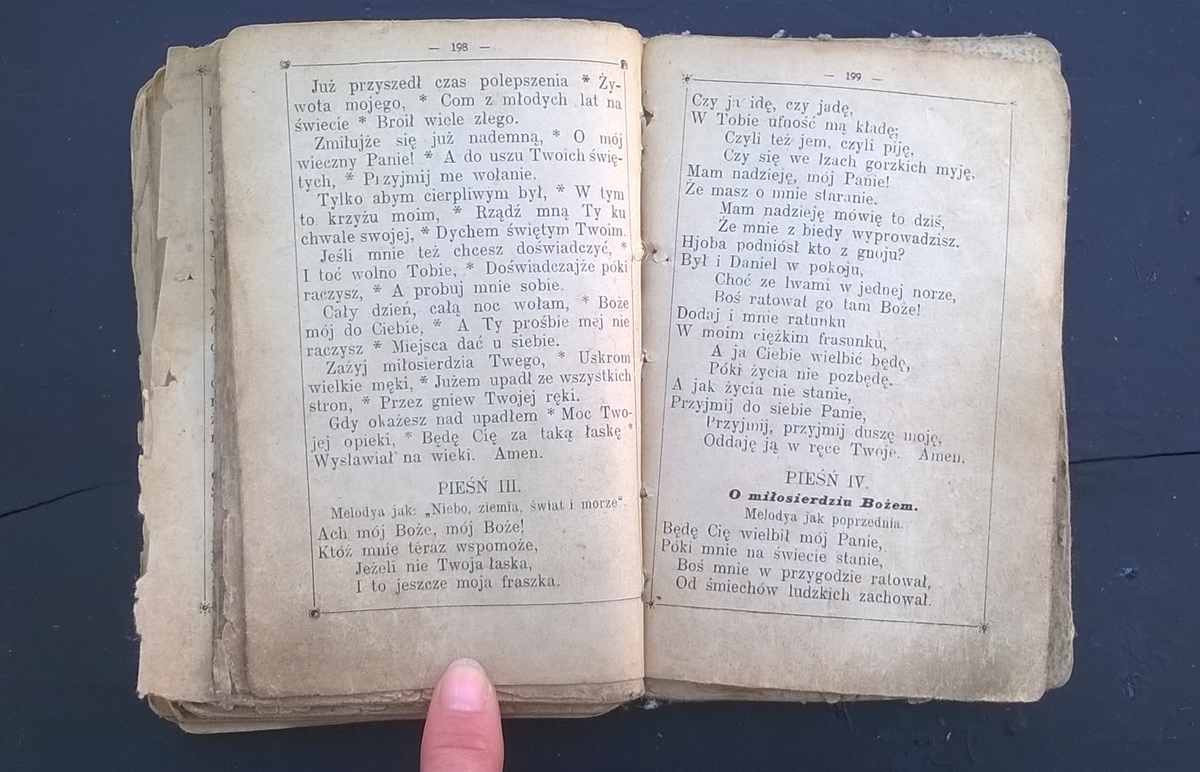 — 198 —
Już przyszedł czas polepszenia * Ży-
wota mojego, * Com z młodych lat na
świecie * Broił wiele złego.
Zmiłujże się już nademną, * O mój
wieczny Panie! * A do uszu Twoich świę-
tych, * Przyjmij me wołanie.
Tylko abym cierpliwym był, * W tym
to krzyżu moim, * Rządź mną Ty ku
chwale swojej, * Dychem świętym Twoim.
Jeśli mnie też chcesz doświadczyć, *
I toć wolno Tobie, * Doświadczajże póki
raczysz, * A probuj mnie sobie.
Cały dzień, całą noc wołam, * Boże
mój do Ciebie, * A Ty prośbie mej nie
raczysz * Miejsca dać u siebie.
Zażyj miłosierdzia Twego, * Uskrom
wielkie męki, * Jużem upadł ze wszystkich
stron, * Przez gniew Twojej ręki.
Gdy okażesz nad upadłem * Moc Two-
jej opieki, * Będę Cię za taką łaskę *
Wysławiał na wieki. Amen.
PIEŚŃ III.
Melodya jak: „Niebo, ziemia, świat i morze“.
Ach mój Boże, mój Boże!
Któż mnie teraz wspomoże,
Jeżeli nie Twoja łaska,
I to jeszcze moja fraszka.
— 199 —
Czy ja idę, czy jadę,
W Tobie ufność mą kładę;
Czyli też jem, czyli piję,
Czy się we łzach gorzkich myję,
Mam nadzieję, mój Panie!
Że masz o mnie staranie.
Mam nadzieję mówię to dziś,
Że mnie z biedy wyprowadzisz.
Hjoba podniósł kto z gnoju?
Był i Daniel w pokoju,
Choć ze lwami w jednej norze,
Boś ratował go tam Boże!
Dodaj i mnie ratunku
W moim ciężkim frasunku,
A ja Ciebie wielbić będę,
Póki życia nie pozbędę.
A jak życia nie stanie,
Przyjmij do siebie Panie,
Przyjmij, przyjmij duszę moję,
Oddaję ją w ręce Twoje. Amen.
PIEŚŃ IV.
O miłosierdziu Bożem.
Melodya jak poprzednia.
Będę Cię wielbił mój Panie,
Póki mnie na świecie stanie,
Boś mnie w przygodzie ratował,
Od śmiechów ludzkich zachował.